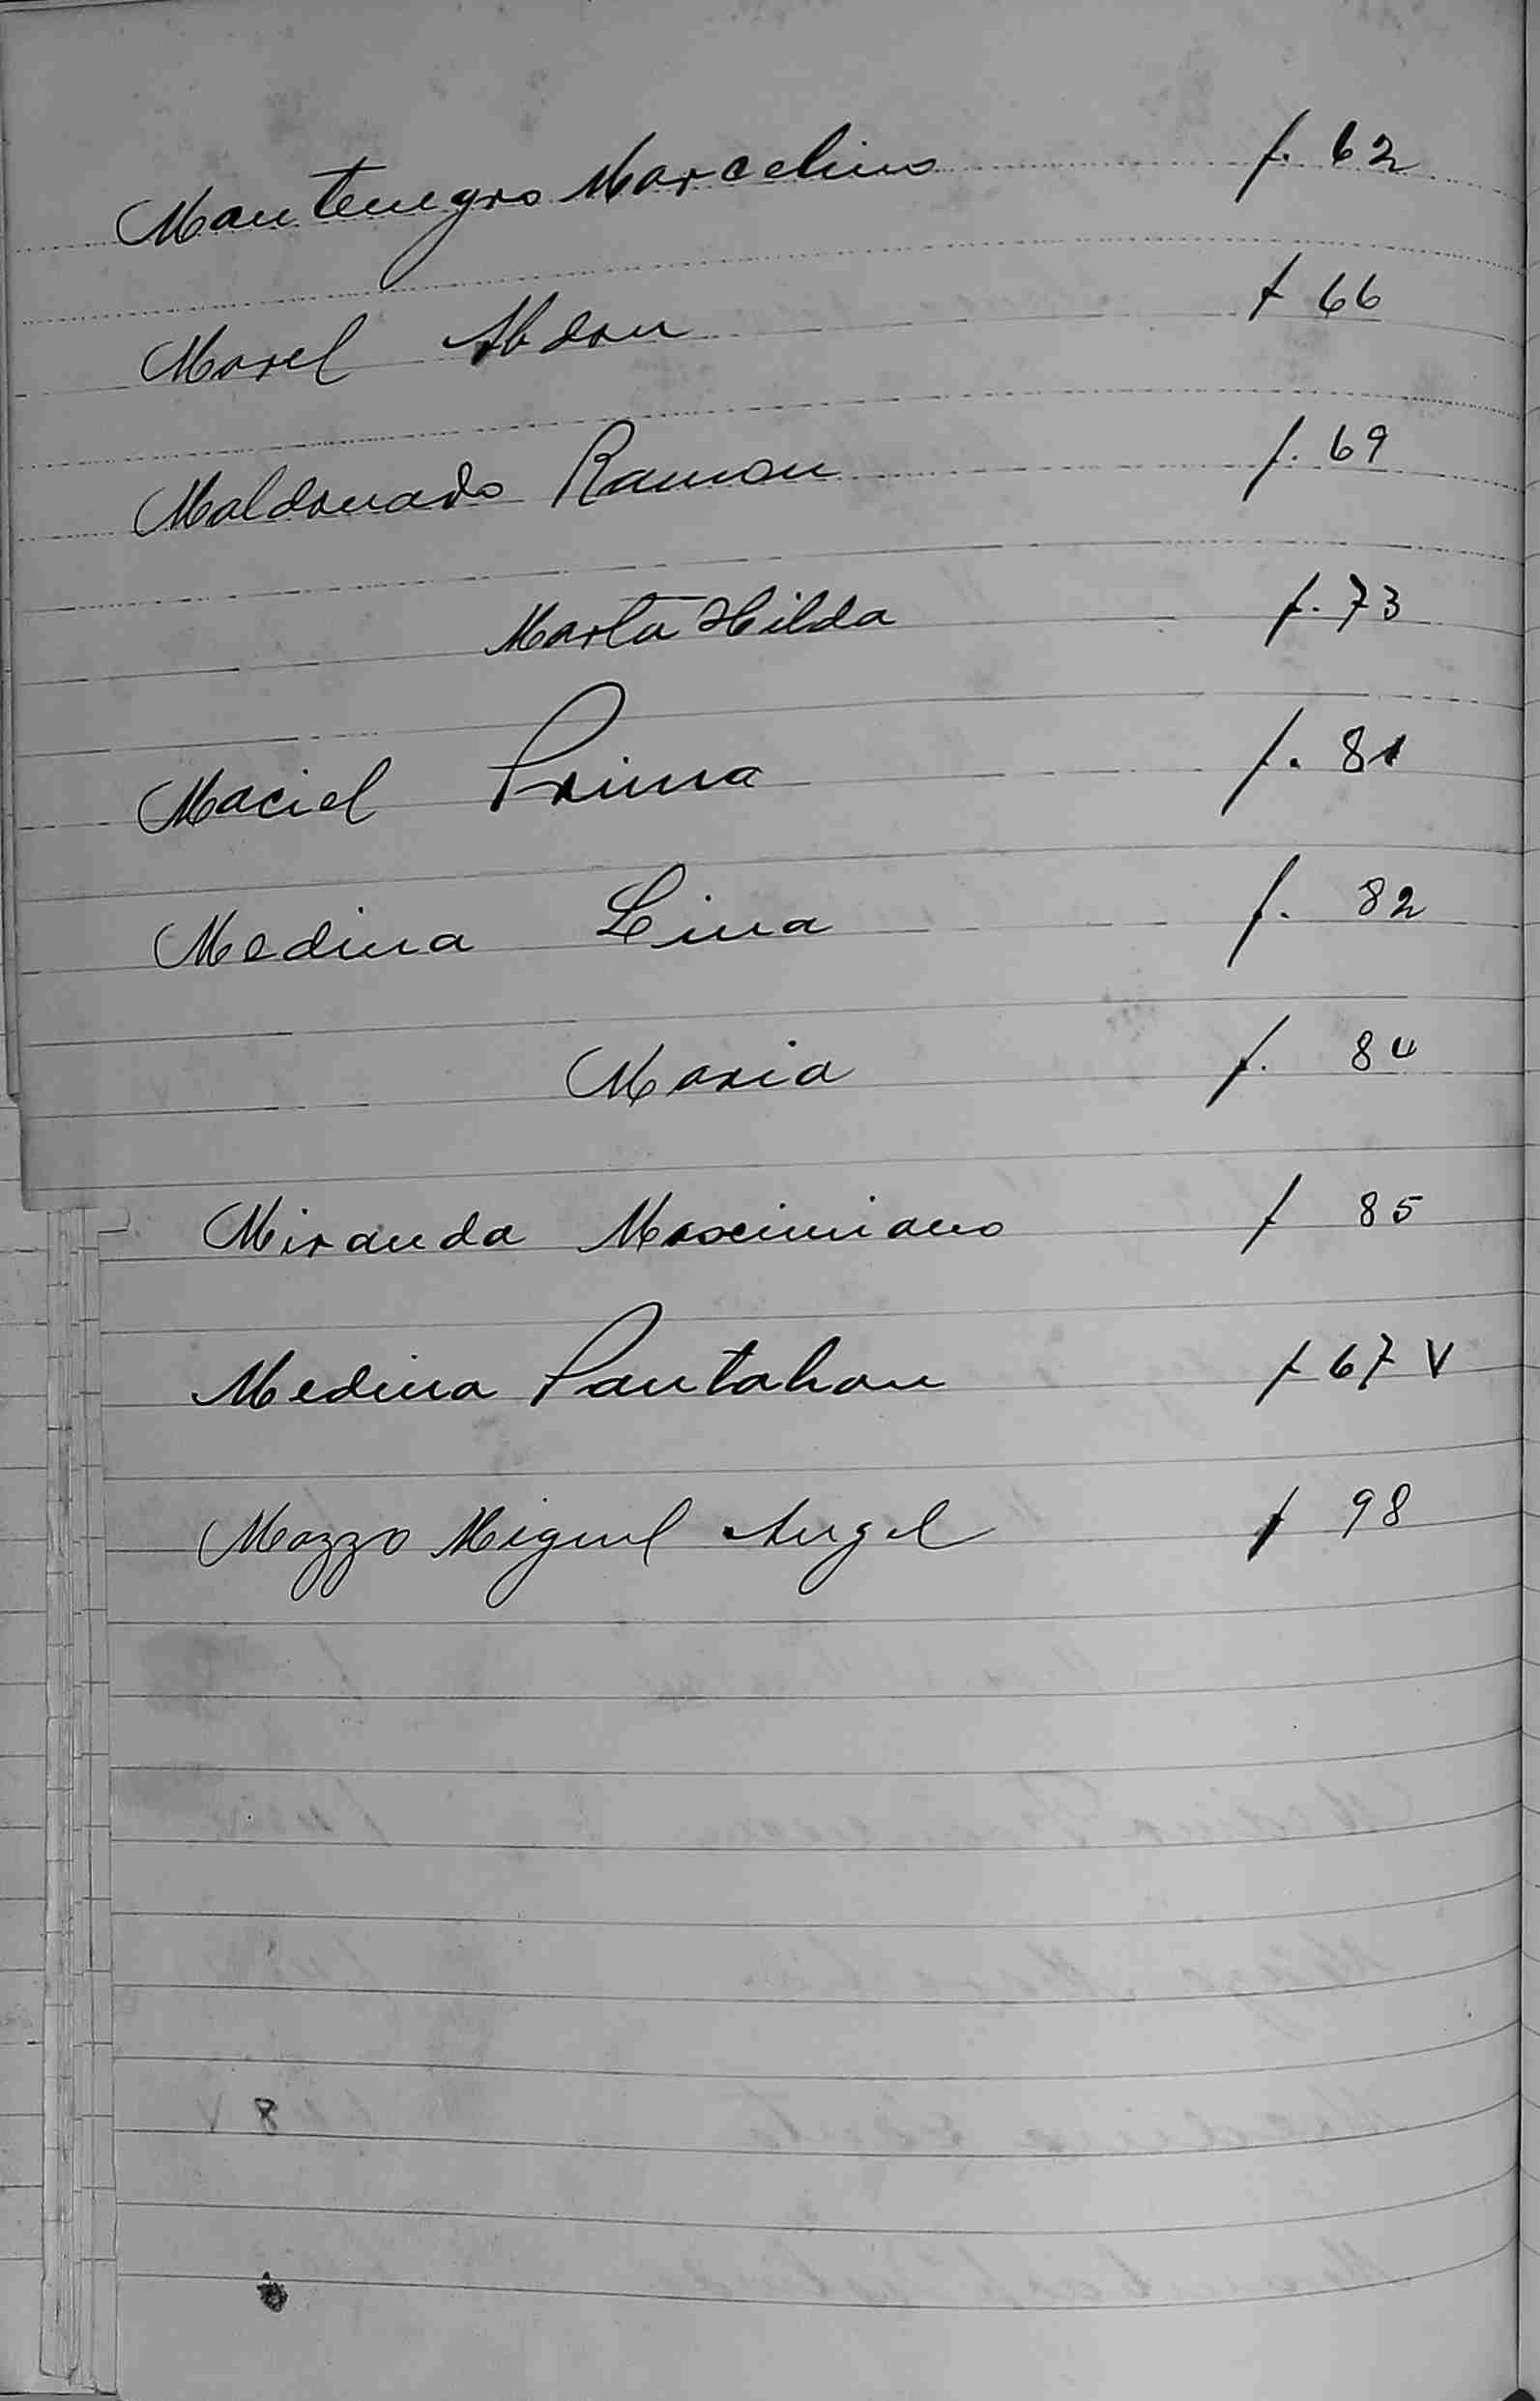 Montenegro Marcelino f. 62
Morel Abdon f 66
Maldonado Ramon f. 69
Marta Hilda f. 73
Maciel Prima f. 81
Medina Lina f. 82
Maria f. 84
Miranda Maximiano f 85
Medina Pantaleon f 67 V
Mazzo Miguel Angel f 98